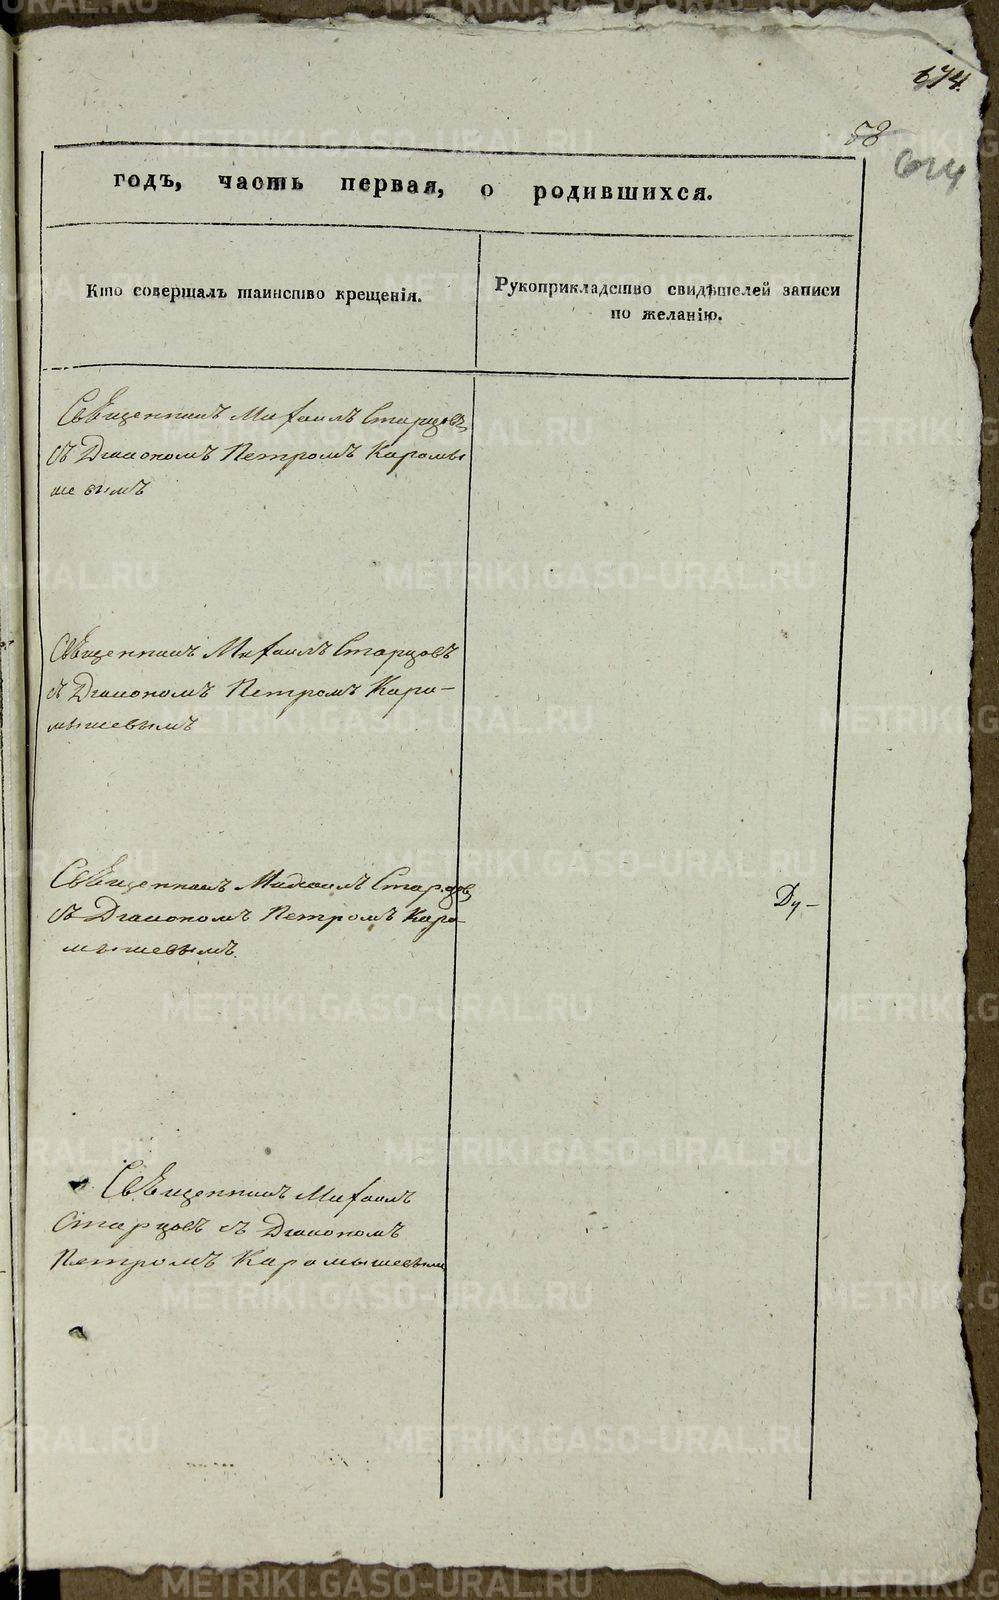 674.
58
674
годъ, часть первая, о родившихся.
Кто совершалъ таинство крещенія.
Рукоприкладство свидѣтелей записи
по желанію.
Священникъ Михаилъ Старцовъ
съ Діакономъ Петромъ Карамы
шевымъ
Священникъ Михаилъ Старцовъ
съ Діакономъ Петромъ Кара-
мышевымъ
Священникъ Михаилъ Старцовъ
съ Діакономъ Петромъ Кара-
мышевымъ.
Ду-
Священникъ Михаилъ
Старцовъ съ Діакономъ
Петромъ Карамышевымъ
METRIKI.GASO-URAL.RU